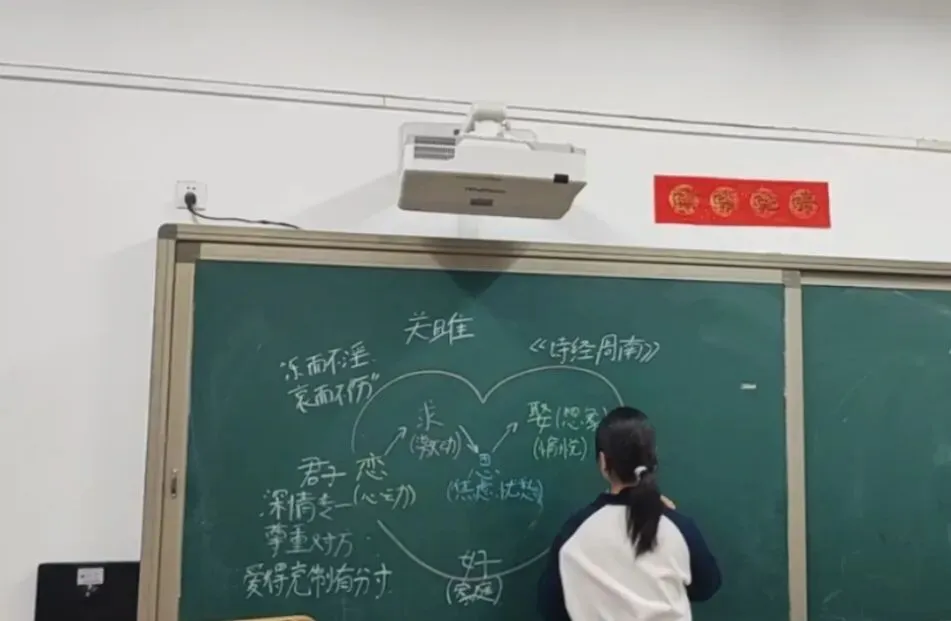 关雎
《诗经周南》
"乐而不淫
哀而不伤"
求
(激动)
娶(想象)
(愉悦)
君子 恋
(心动)
思
(焦虑、忧愁)
深情专一
尊重对方
爱得克制有分寸
好
(家庭)